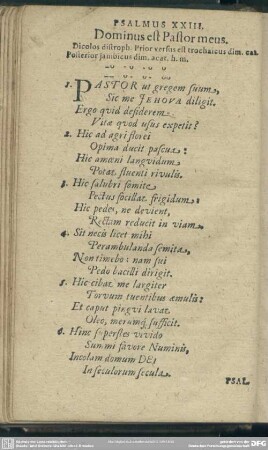 PSALMUS XXIII.
Dominus est Pastor meus.
Dicolos distroph. Prior versus est trochaicus dim. cat.
Posterior jambicus dim. acat. h. m.
1. PASTOR ut gregem suum,
Sic me JEHOVA diligit.
Ergo quid desiderem
Vitæ quod usus expetit?
2. Hic ad agri florei
Opima ducit pascua:
Hic amœni languidum
Potat fluenti rivulis.
3. Hic salubri fomite
Pectus focillat frigidum:
Hic pedes, ne devient,
Rectam reducit in viam.
4. Sit necis licet mihi
Perambulanda semita,
Non timebo: nam sui
Pedo bacilli dirigit.
5. Hic cibat me largiter
Torvum tuentibus æmulis:
Et caput pingui lavat
Oleo, merumq; sufficit.
6. Hinc superstes vivido
Summi favore Numinis,
Incolam domum DEI
In seculorum secula.
PSAL.
DFG